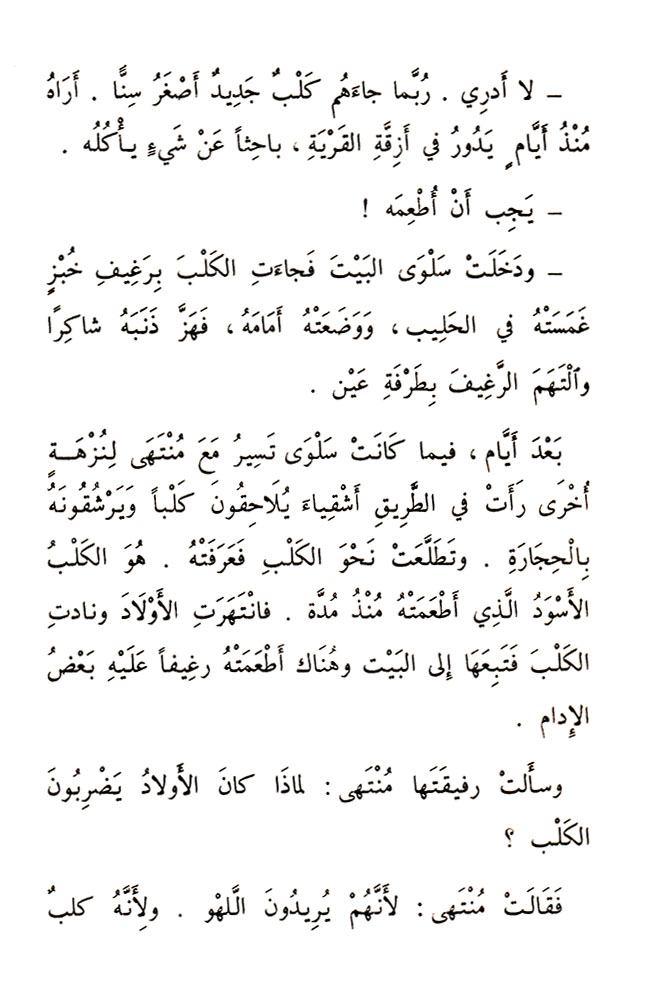 ـ لا أَدرِي . رُبَّما جاءَهُم كَلْبٌ جَدِيدٌ أَصْغَرُ سِنًّا . أَرَاهُ
مُنْذُ أَيَّامٍ يَدُورُ في أَزِقَّةِ القَرْيَةِ ، باحِثاً عَنْ شَيءٍ يأْكُلُه .
ـ يَجِب أَنْ أُطْعِمَه !
ـ ودَخَلَتْ سَلْوَى البَيْتَ فَجاءَتِ الكَلْبَ بِرَغِيفِ خُبْزٍ
غَمَسَتْهُ في الحَلِيب ، وَوَضَعَتْهُ أَمَامَهُ ، فَهَزَّ ذَنَبَهُ شاكِرًا
وٱلْتَهَمَ الرَّغِيفَ بِطَرْفَةِ عَيْن .
بَعْدَ أَيَّام ، فيما كَانَتْ سَلْوَى تَسِيرُ مَعَ مُنْتَهَى لِنُزْهَـــةٍ
أُخْرَى رَأَتْ في الطَّرِيقِ أَشْقِياءَ يُلَاحِقُونَ كَلْباً وَيَرْشُقُونَهُ
بِالْحِجَارَةِ . وتَطَلَّعَتْ نَحْوَ الكَلْبِ فَعَرَفَتْهُ . هُوَ الكَلْبُ
الأَسْوَدُ الَّذِي أَطْعَمَتْهُ مُنْذُ مُدَّة . فانْتَهَرَتِ الأَوْلَادَ ونادتِ
الكَلْبَ فَتَبِعَهَا إِلى البَيْت وهُنَاك أَطْعَمَتْهُ رغِيفاً عَلَيْهِ بَعْضُ
الإِدام .
وسأَلتْ رفيقَتَها مُنْتَهى : لماذَا كانَ الأَولادُ يَضْرِبُونَ
الكَلْب ؟
فَقَالَتْ مُنْتَهى : لأَنَّهُمْ يُرِيدُونَ الَّلهْو . ولِأَنَّهُ كلبٌ